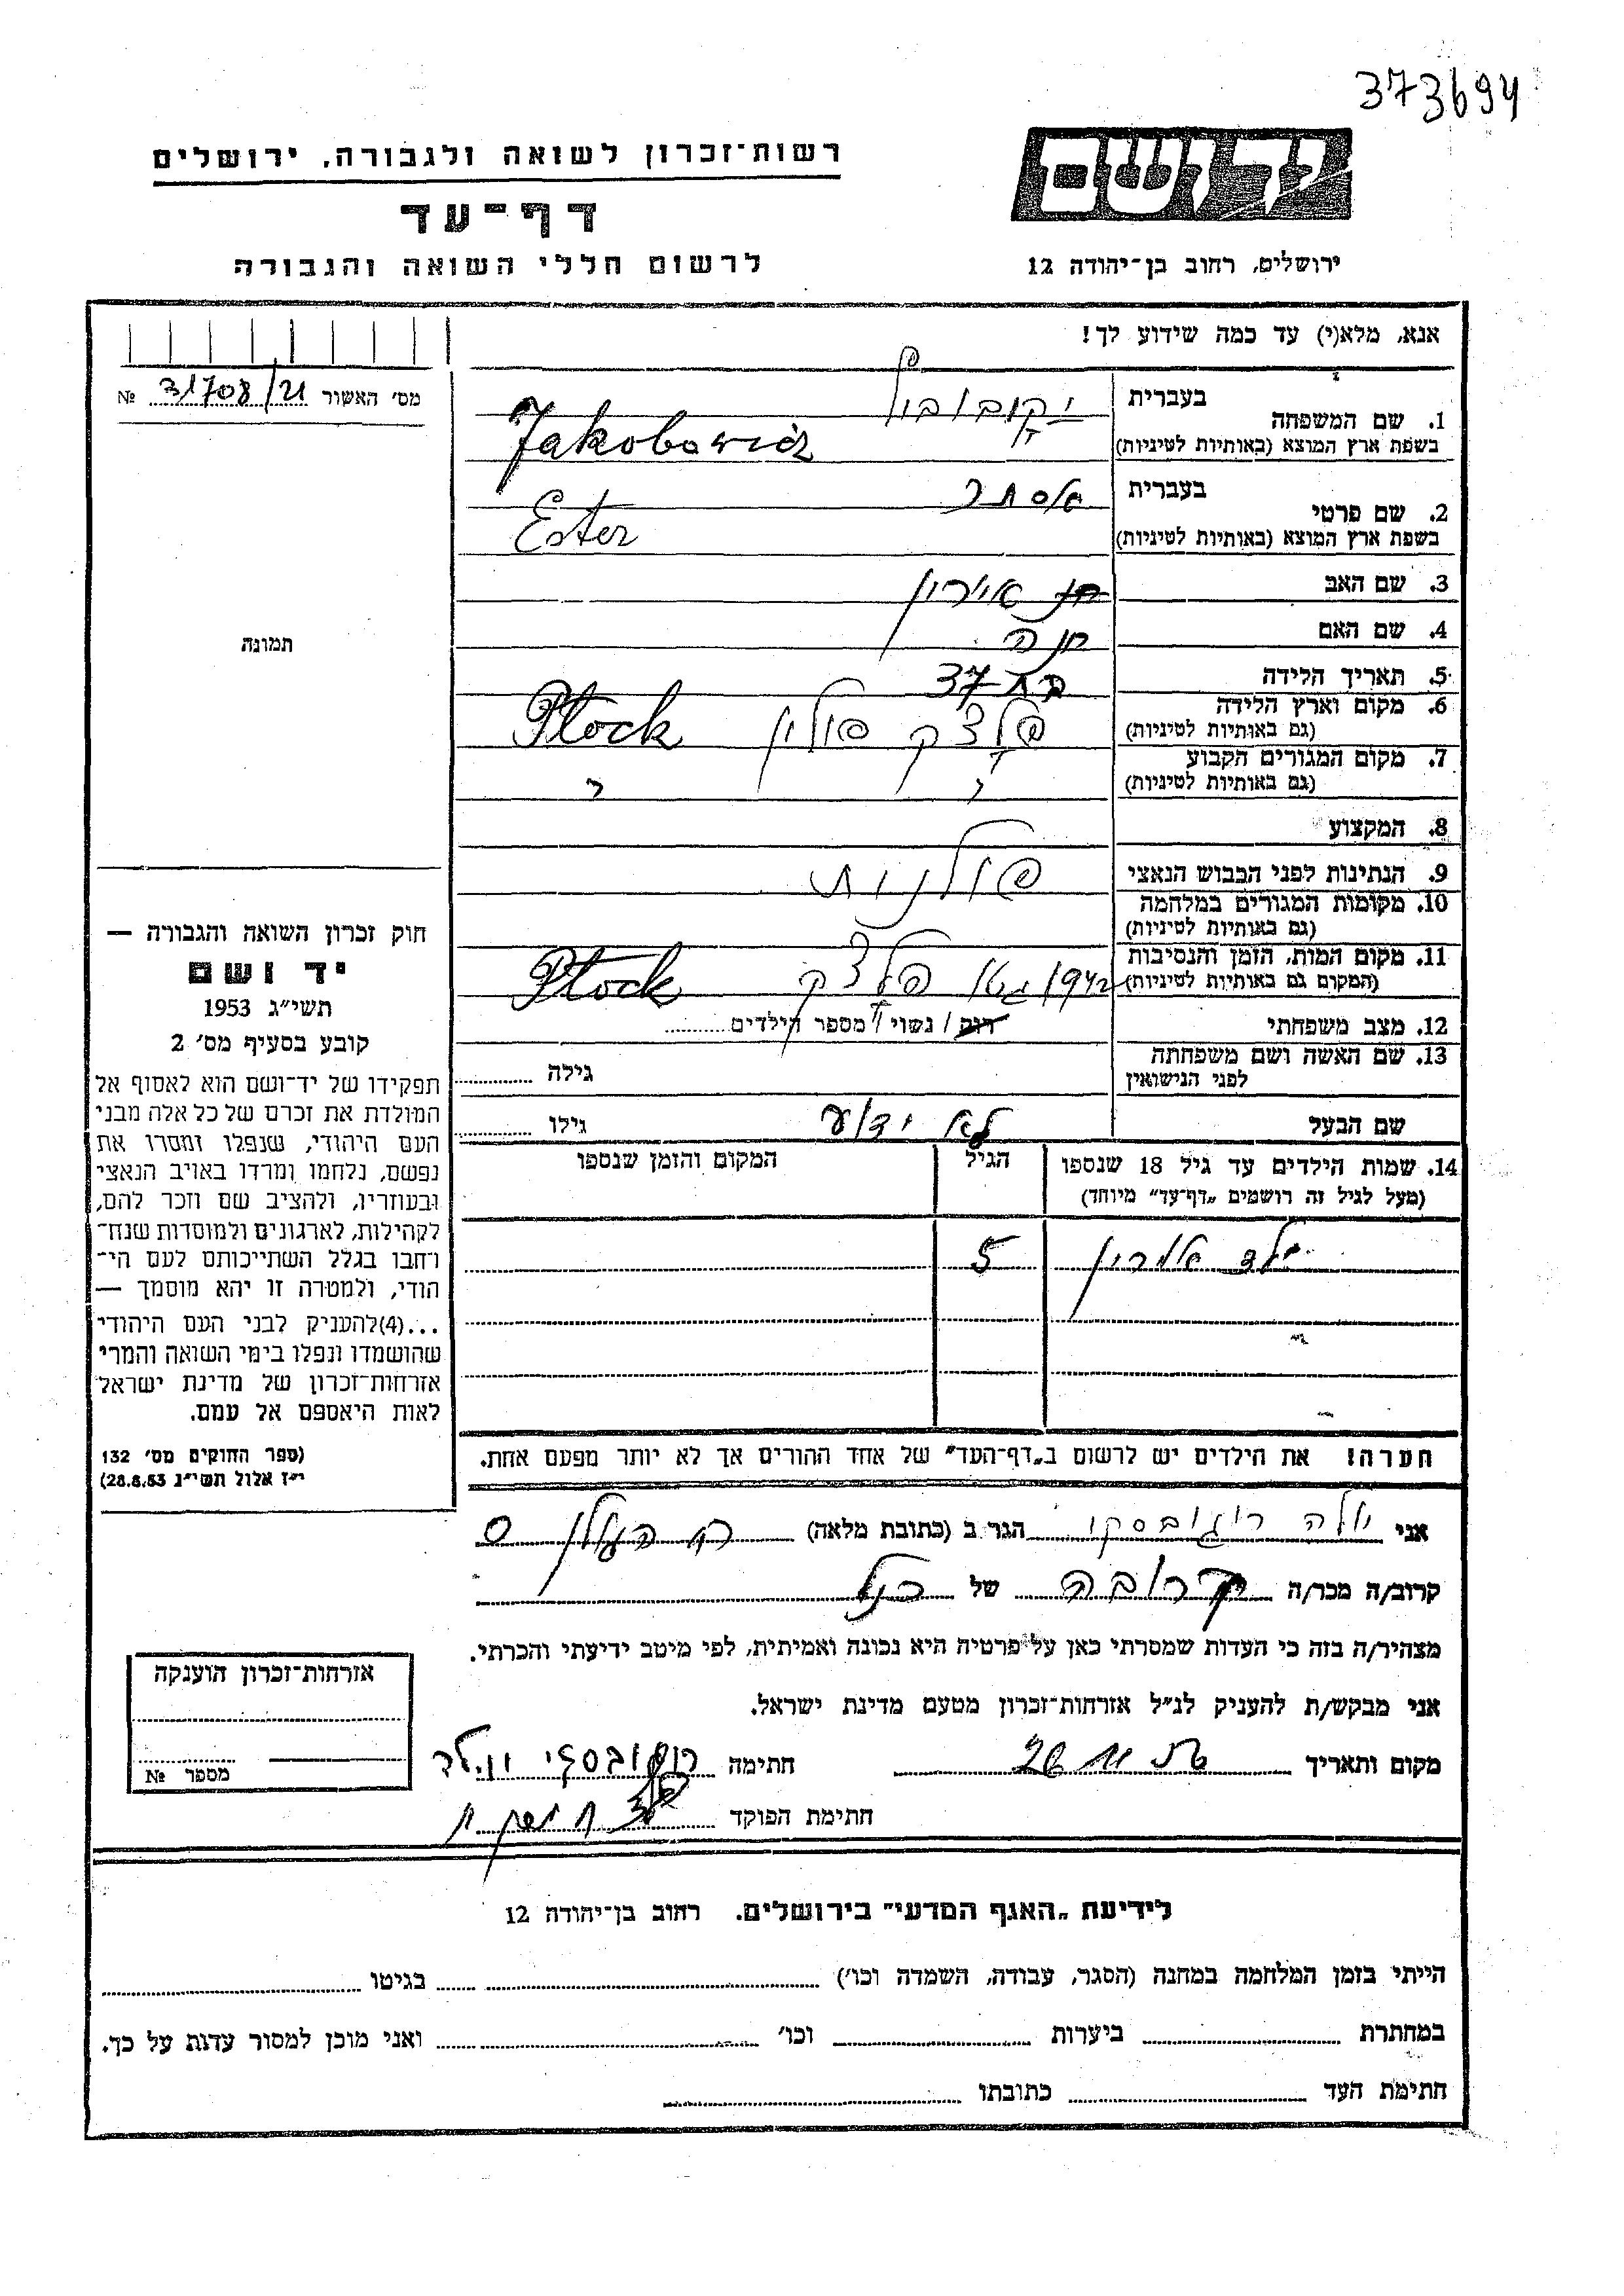 373694
ידושם
רשות־זכרון לשואה ולגבורה. ירושלים
דף־עד
ירושלים, רחוב בן־יהודה 12
לרשום חללי השואה והגבורה
אנא, מלא(י) עד כמה שידוע לך!
מס׳ האשור 31708/21 №
1. שם המשפחה
בעברית
בשפת ארץ המוצא (באותיות לטיניות) Jakobowicz
2. שם פרטי
בעברית אסתר
בשפת ארץ המוצא (באותיות לטיניות) Ester
3. שם האב
4. שם האם חנה
תמונה
5. תאריך הלידה בת 37
6. מקום וארץ הלידה
(גם באותיות לטיניות) פלצק פולין Płock
7. מקום המגורים הקבוע
(גם באותיות לטיניות)
8. המקצוע
9. הנתינות לפני הכבוש הנאצי פולנית
10. מקומות המגורים במלחמה
(גם באותיות לטיניות)
11. מקום המות, הזמן והנסיבות
(המקום גם באותיות לטיניות) 1942 גטו פלצק Płock
12. מצב משפחתי רוק / נשוי / מספר הילדים
13. שם האשה ושם משפחתה
לפני הנישואין גילה
שם הבעל לא ידוע גילו
14. שמות הילדים עד גיל 18 שנספו
(מעל לגיל זה רושמים „דף־עד״ מיוחד)
הגיל
המקום והזמן שנספו
5
חוק זכרון השואה והגבורה —
יד ושם
תשי״ג 1953
קובע בסעיף מס׳ 2
תפקידו של יד־ושם הוא לאסוף אל
המולדת את זכרם של כל אלה מבני
העם היהודי, שנפלו ומסרו את
נפשם, נלחמו ומרדו באויב הנאצי
ובעוזריו, ולהציב שם וזכר להם,
לקהילות, לארגונים ולמוסדות שנח־
רחבו בגלל השתייכותם לעם הי־
הודי, ולמטרה זו יהא מוסמך —
...(4)להעניק לבני העם היהודי
שהושמדו ונפלו בימי השואה והמרי
אזרחות־זכרון של מדינת ישראל
לאות היאספם אל עמם.
(ספר החוקים מס׳ 132
י״ז אלול תשי״ג 28.8.53)
הערה! את הילדים יש לרשום ב„דף־העד״ של אחד ההורים אך לא יותר מפעם אחת.
אני הגר ב (כתובת מלאה)
קרוב/ה מכר/ה קרובה של
מצהיר/ה בזה כי העדות שמסרתי כאן על פרטיה היא נכונה ואמיתית, לפי מיטב ידיעתי והכרתי.
אני מבקש/ת להעניק לנ״ל אזרחות־זכרון מטעם מדינת ישראל.
מקום ותאריך חתימה
חתימת הפוקד
אזרחות־זכרון הוענקה
מספר №
לידיעת „האגף המדעי״ בירושלים. רחוב בן־יהודה 12
הייתי בזמן המלחמה במחנה (הסגר, עבודה, השמדה וכו׳) בגיטו
במחתרת ביערות וכו׳ ואני מוכן למסור עדות על כך.
חתימת העד כתובתו